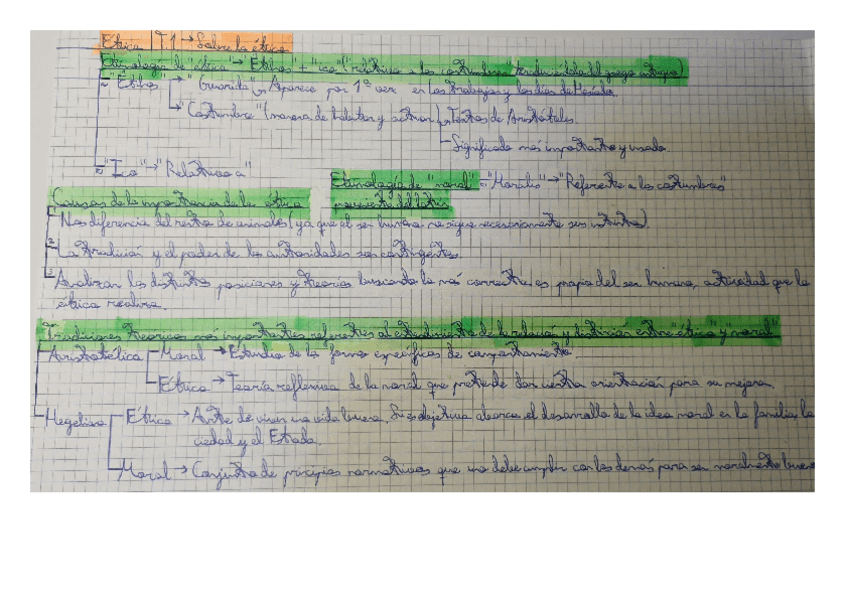 Ética T1 → Sobre la ética
Etimología de "ética" → "Ethos" + "ica" ("relativo a las costumbres" traducido del griego antiguo)
"Ethos" → "Guarida" ↳ Aparece por 1ª vez en Los trabajos y los días de Hesíodo.
↳ "Costumbre" (manera de habitar y actuar) Textos de Aristóteles.
Significado más importante y usado.
"Ica" → "Relativo a"
Etimología de "moral" = "Moralis" → "Referente a las costumbres"
proveniente del latín
Causas de la importancia de la ética
Nos diferencia del resto de animales (ya que el ser humano no sigue necesariamente sus instintos).
2 La tradición y el poder de las autoridades son contingentes.
3 Analizar las distintas posiciones y teorías buscando la más correcta es propia del ser humano, actividad que la
ética realiza.
Tradiciones teóricas más importantes referentes al entendimiento de la relación y distinción entre "ética" y "moral"
Aristotélica Moral → Estudia de las formas específicas de comportamiento.
Ética → Teoría reflexiva de la moral que pretende dar cuenta orientación para su mejora.
Hegeliana Ética → Arte de vivir una vida buena. Su objetivo abarca el desarrollo de la idea moral en la familia, la
ciedad y el Estado.
Moral → Conjunto de principios normativos que uno debe cumplir con los demás para ser moralmente bueno